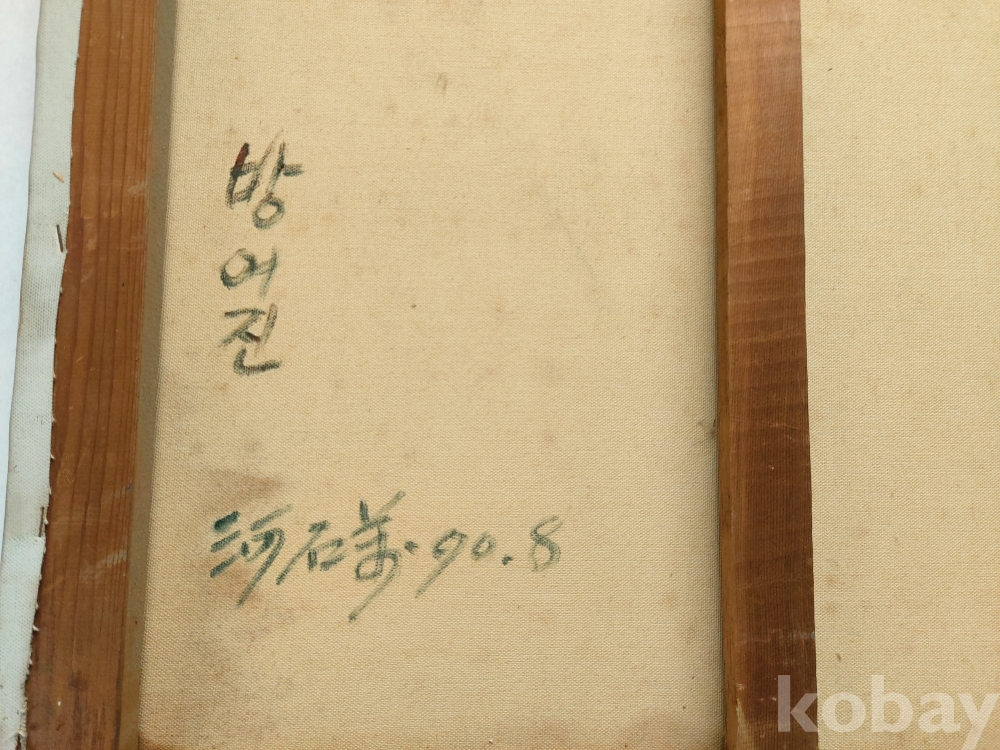 방어진
河石萬.90.8
kobay